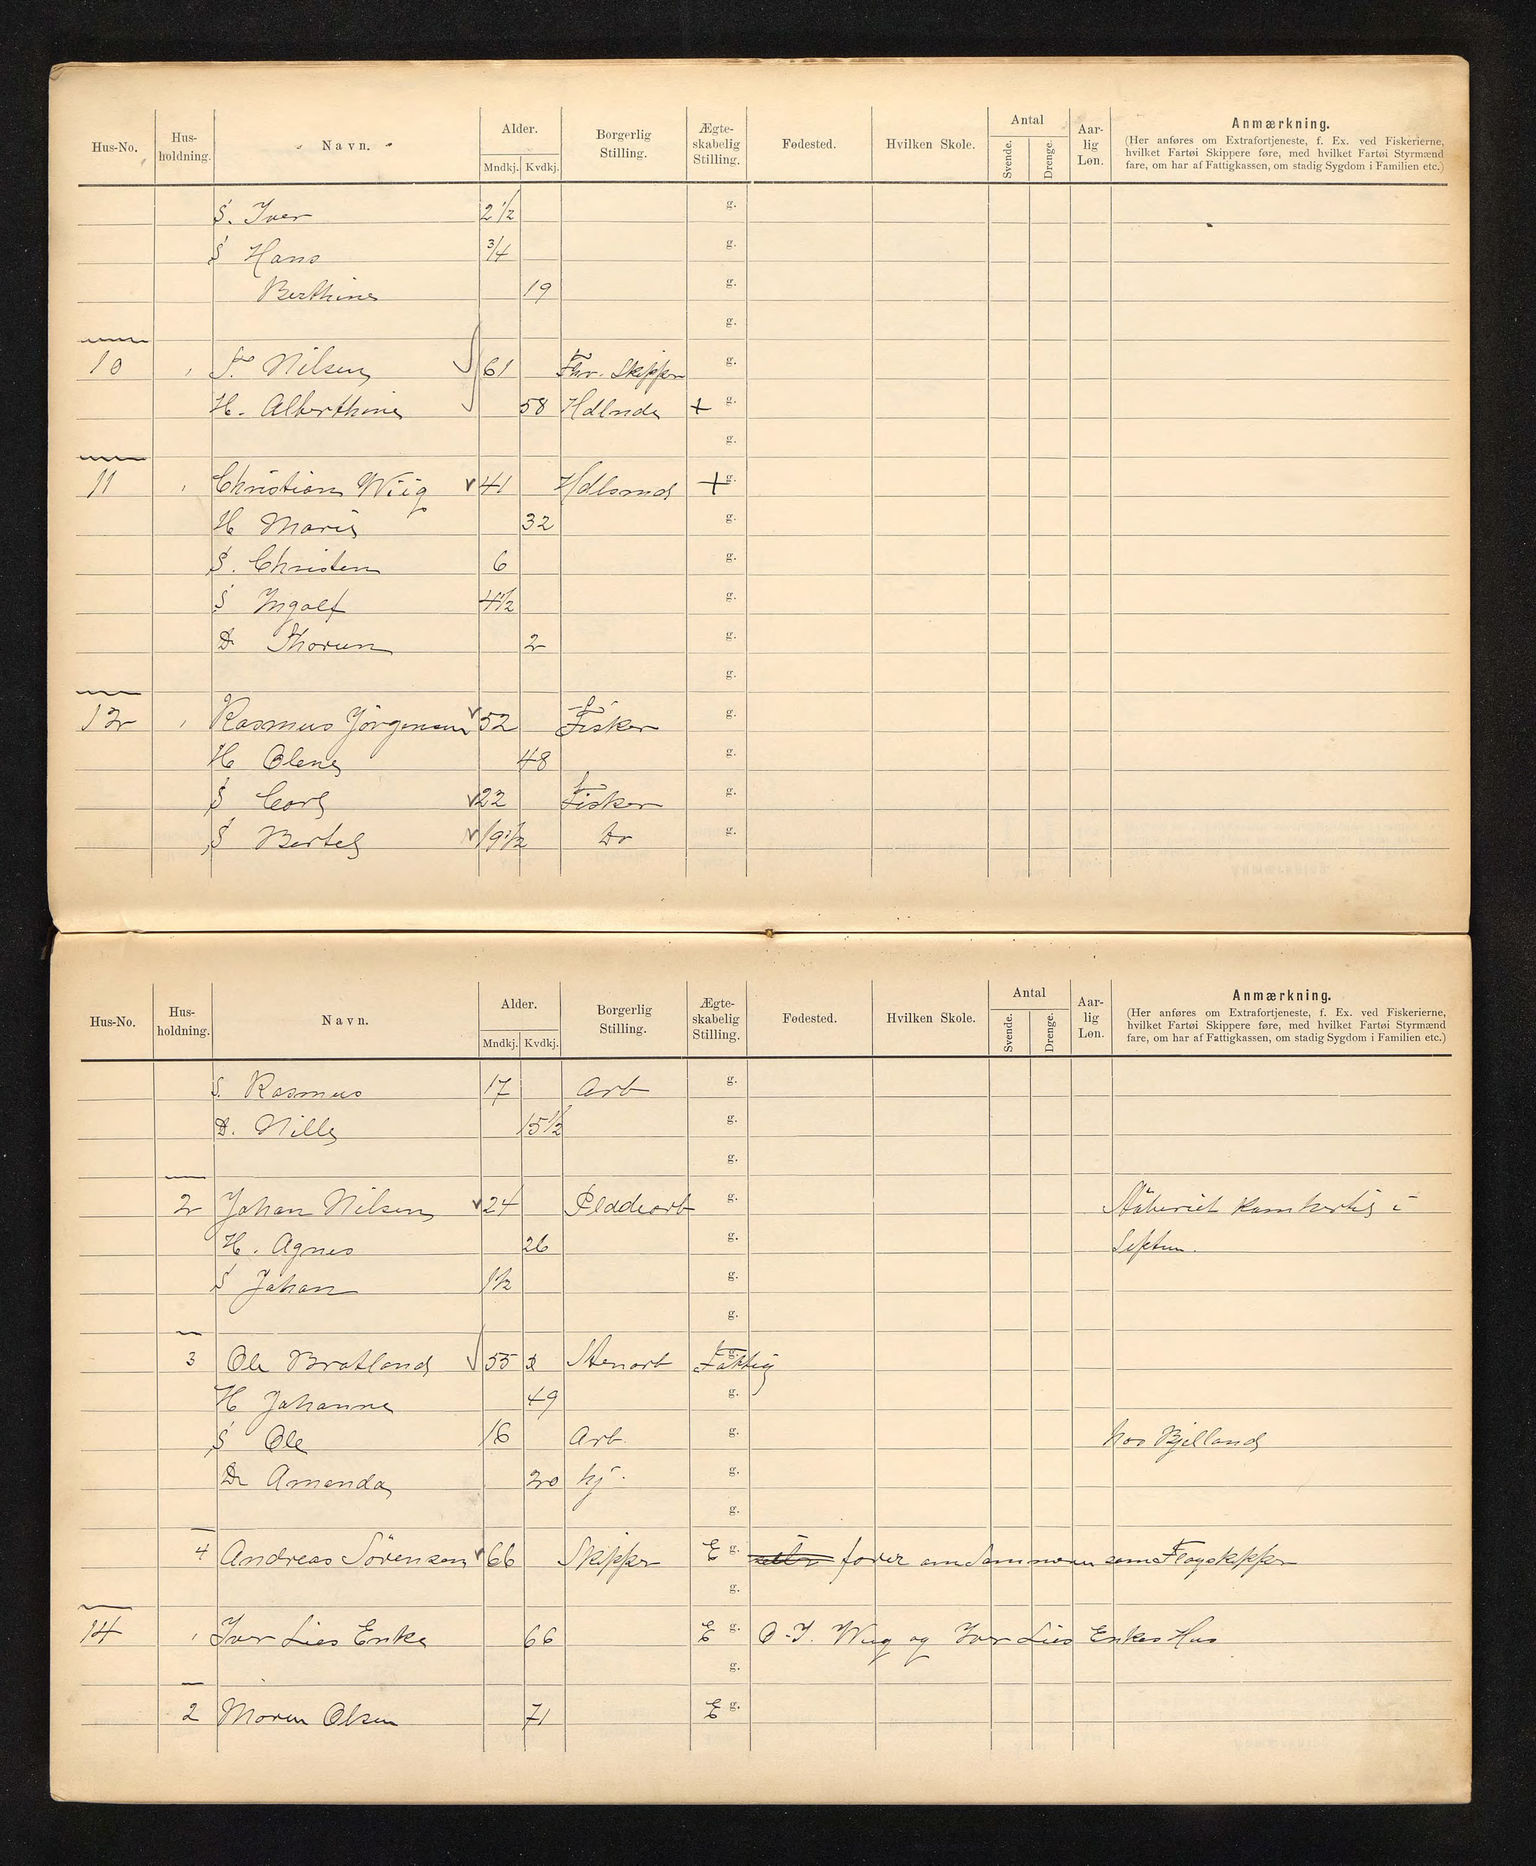 Hus-No. Hus-holdning. Navn. Alder. Mndkj. Kvdkj. Borgerlig Stilling. Ægte-skabelig Stilling. Fødested. Hvilken Skole. Antal Svende. Drenge. Aar-lig Løn. Anmærkning.
(Her anføres om Extrafortjeneste, f. Ex. ved Fiskerierne,
hvilket Fartøi Skippere føre, med hvilket Fartøi Styrmænd
fare, om har af Fattigkassen, om stadig Sygdom i Familien etc.)
S. Iver 2 1/2 g.
S Hans 3/4 g.
Berthine 19 g.
g.
10 Nilsen 61 Fhv. Skipper g.
H. Alberthine 58 Hdlnde + g.
g.
11 Christian Wiig 41 Hdlsmd + g.
H Marie 32 g.
S. Christen 6 g.
S Ingolf 4 1/2 g.
D Thorun 2 g.
g.
12 Rasmus Jörgensen 52 Fisker g.
H Olene 48 g.
S Carl 22 Fisker g.
S Bertel 19 1/2 Do g.
Hus-No. Hus-holdning. Navn. Alder. Mndkj. Kvdkj. Borgerlig Stilling. Ægte-skabelig Stilling. Fødested. Hvilken Skole. Antal Svende. Drenge. Aar-lig Løn. Anmærkning.
(Her anføres om Extrafortjeneste, f. Ex. ved Fiskerierne,
hvilket Fartøi Skippere føre, med hvilket Fartøi Styrmænd
fare, om har af Fattigkassen, om stadig Sygdom i Familien etc.)
S. Rasmus 17 Arb g.
D. Nille 15 1/2 g.
g.
2 Johan Nilsen 24 Pladearb g. i
H. Agnes 26 g. Septem.
S Johan 1 1/2 g.
g.
3 Ole Bratland 55 Stenarb Fattig g.
H Johanne 49 g.
S Ole 16 Arb. g. hos Bjelland
D Amanda 20 hj. g.
g.
4 Andreas Sörensen 66 Skipper E g. farer som Flagskipper
g.
14 Iver Lies Enke 66 E g. O. I. Wiig og Iver Lies Enkes Hus
g.
2 Maren Olsen 71 E g.